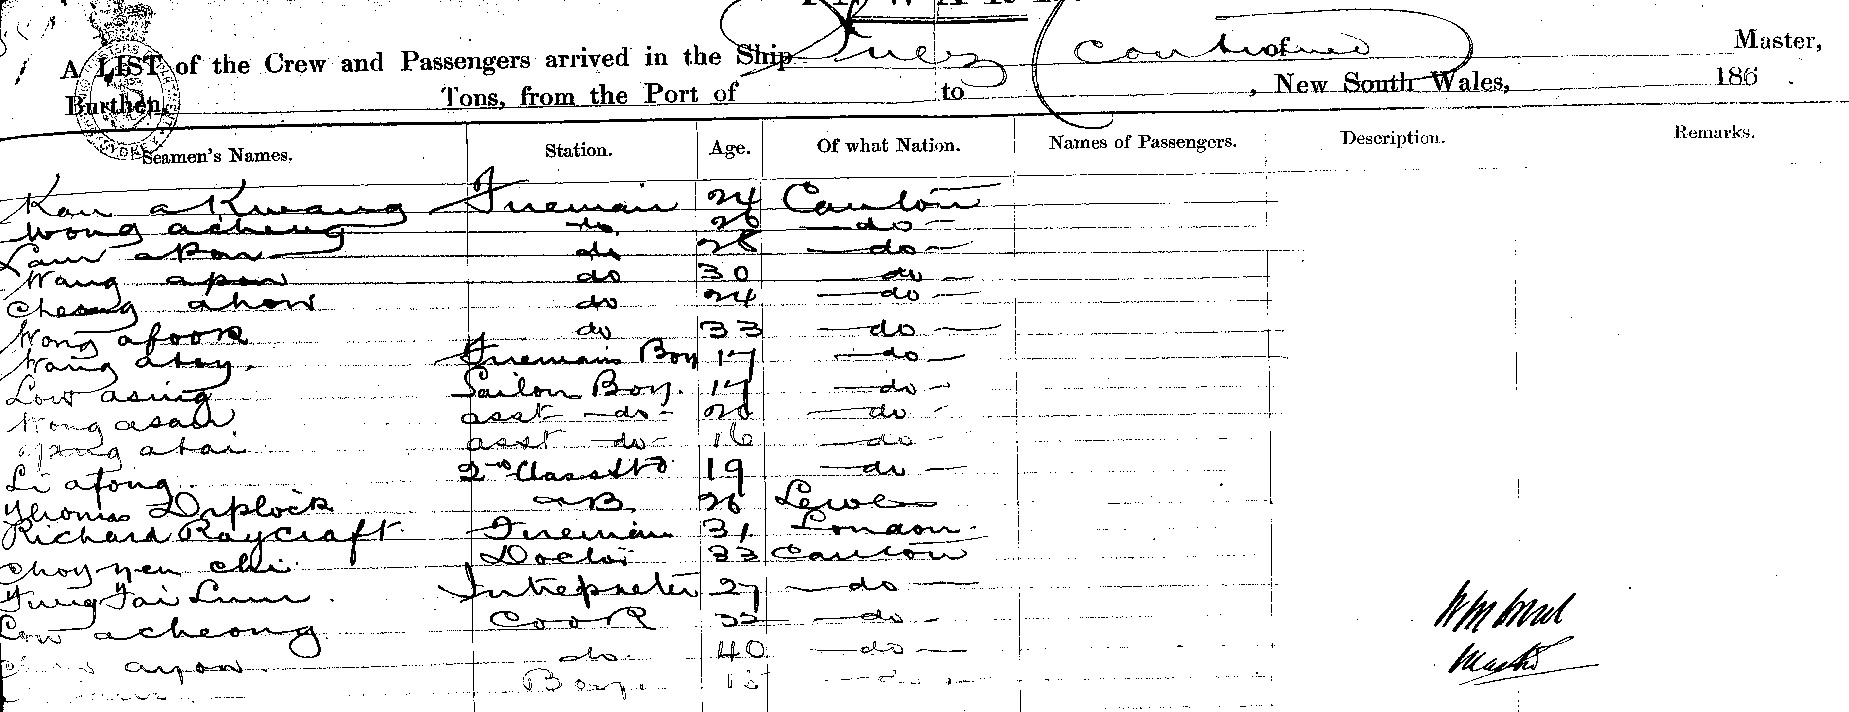 A LIST of the Crew and Passengers arrived in the Ship Suez (continued Master,
Burthen, Tons, from the Port of to , New South Wales, 186 .
Seamen's Names. Station. Age. Of what Nation. Names of Passengers. Description. Remarks.
Kan a Kwang Fireman 24 Canton
Wong acheng do 26 do
Lam apan do 28 do
Wang apan do 30 do
Cheong ahow do 24 do
Wong afook do 33 do
Wang Firemans Boy 17 do
Low asing Sailor Boy. 17 do
Wong asam asst do 20 do
atai asst do 16 do
Li afong 2nd Class Std 19 do
Thomas Diplock AB 26 Lewes
Richard Raycraft Fireman 31 London
Choy yen chi Doctor 33 Canton
Fung Tai Lum Intrepreter 27 do
Low acheong Cook 32 do
ayow do 40 do
Boy 15 do
Master